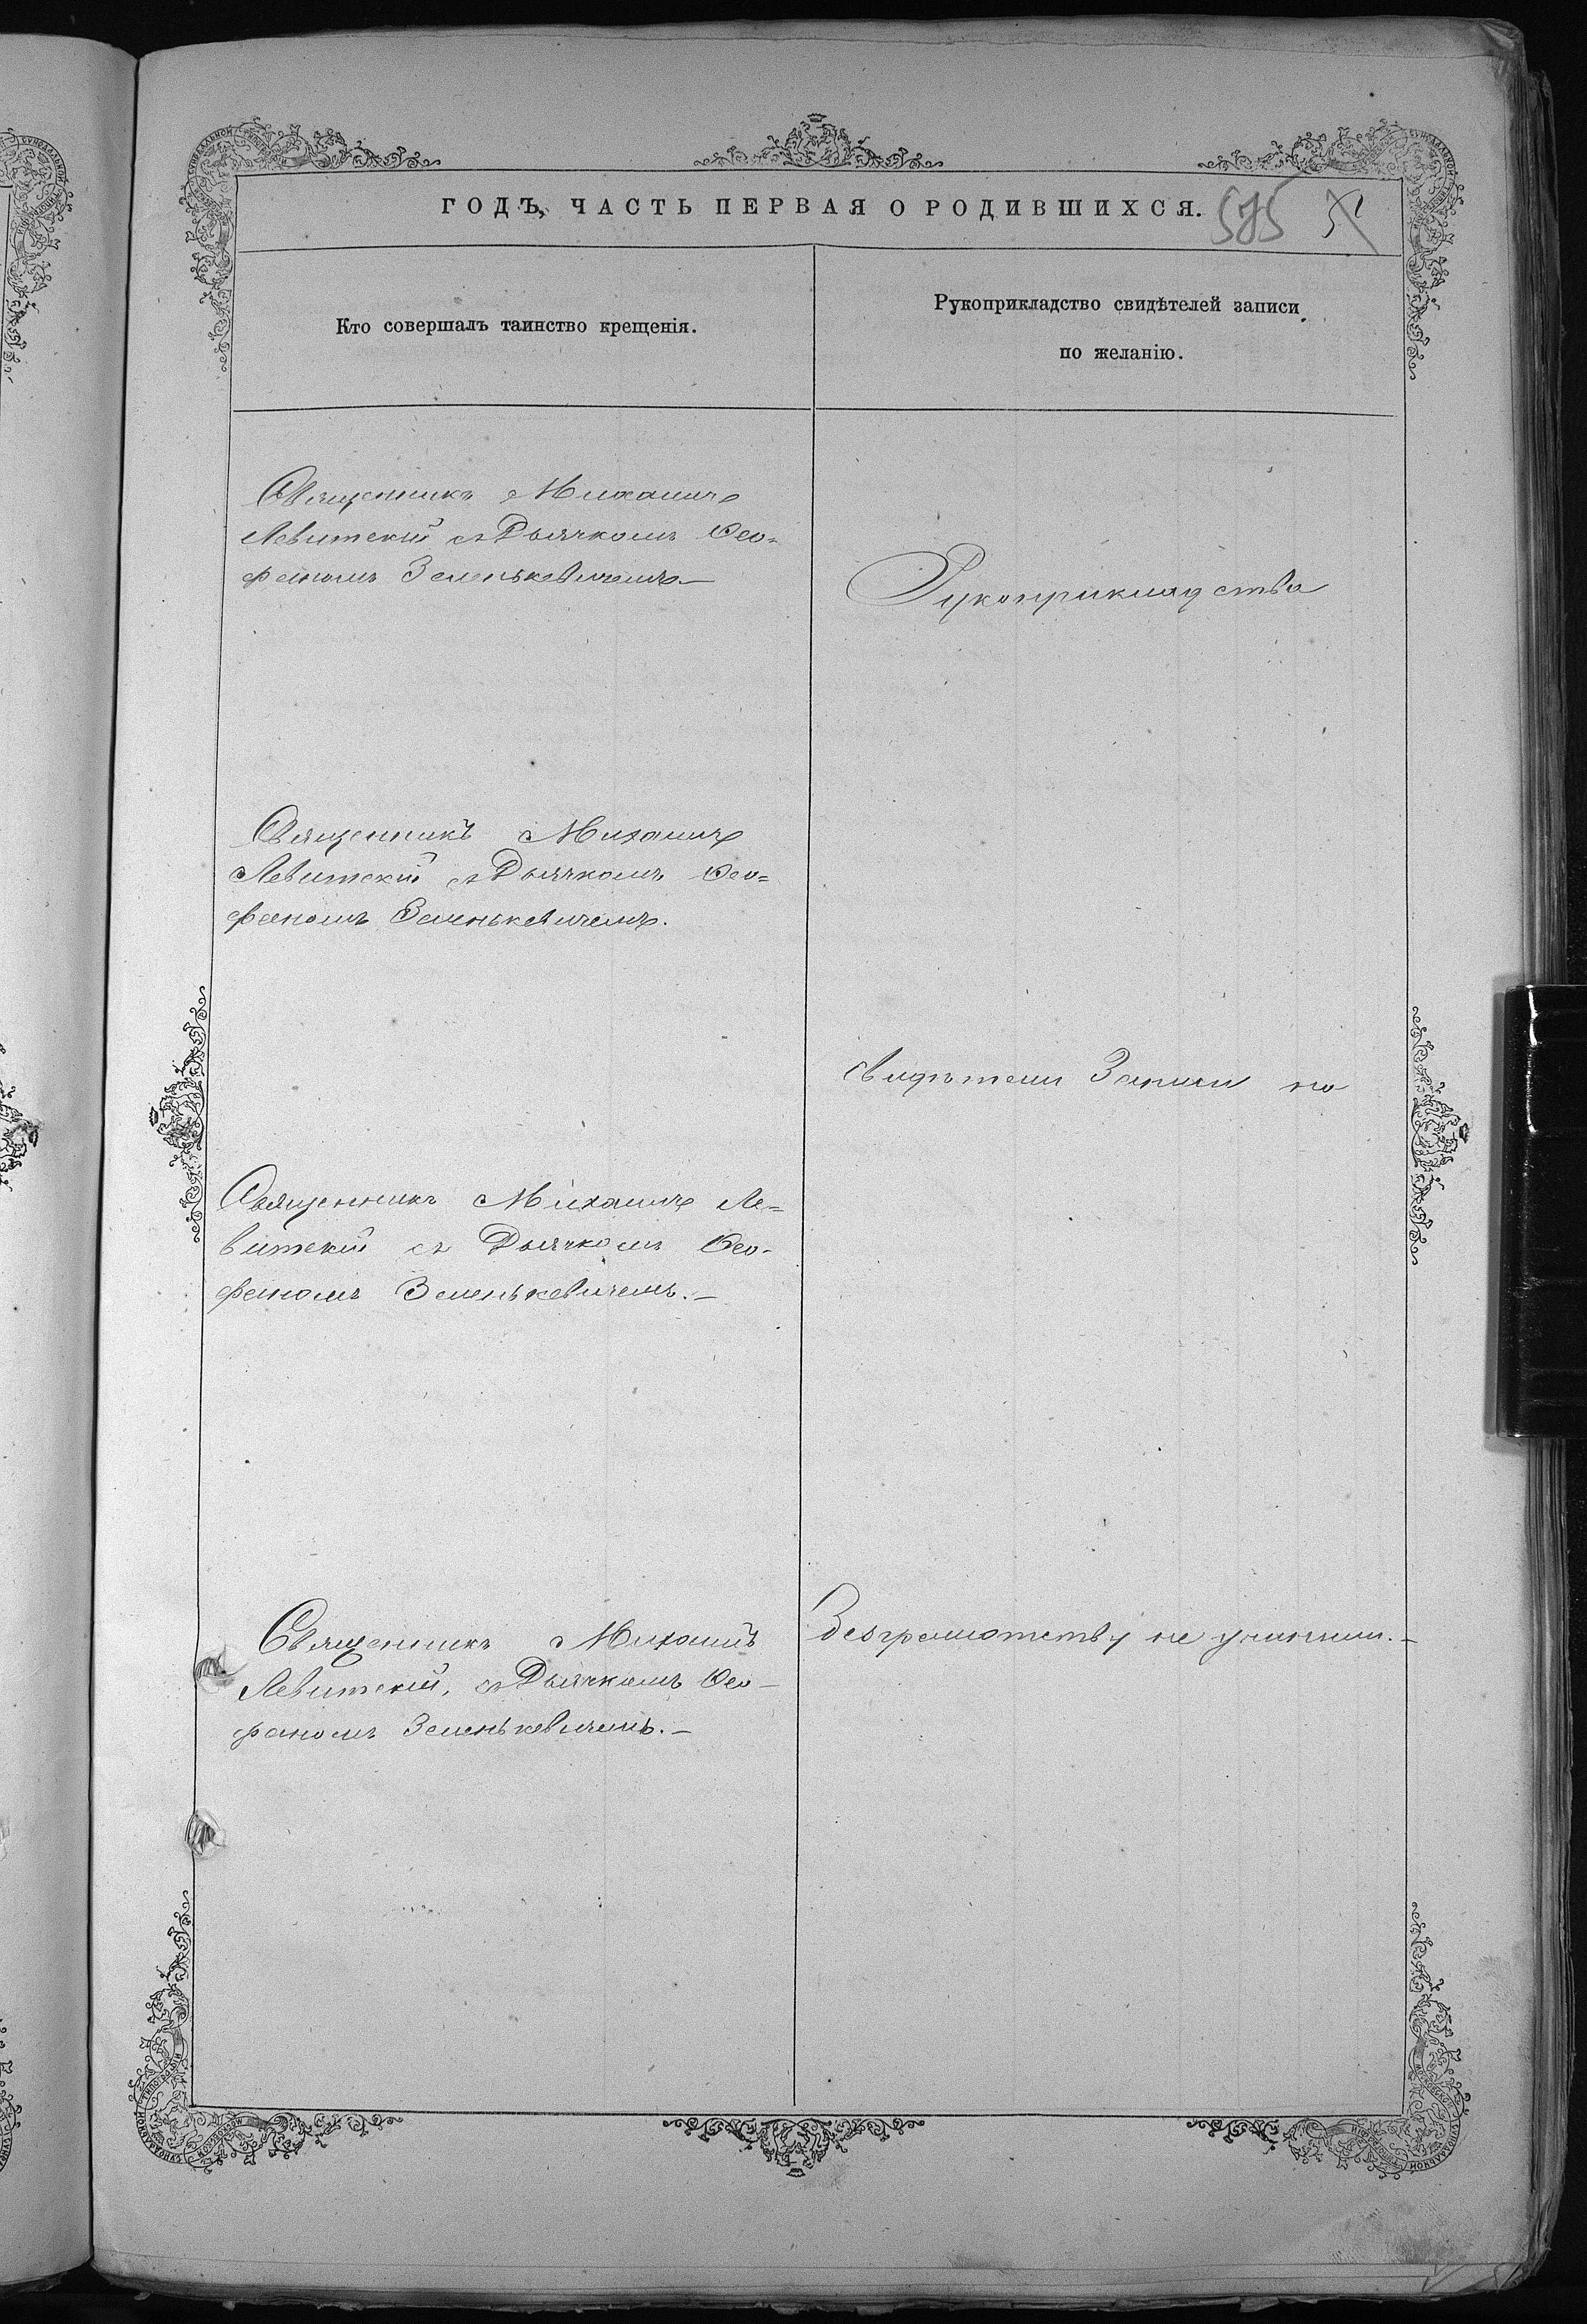 ГОДЪ, ЧАСТЬ ПЕРВАЯ О РОДИВШИХСЯ.
585
Кто совершалъ таинство крещенія.
Рукоприкладство свидѣтелей записи
по желанію.
Священникъ Михаилъ
Левитскій съ Дьячкомъ Ѳео-
фаномъ Зеленькевичемъ.—
Рукоприкладства
Священникъ Михаилъ
Левитскій съ Дьячкомъ Ѳео=
фаномъ Зеленькевичемъ.
свидѣтели Записи по
Священникъ Михаилъ Ле=
витскій съ Дьячкомъ Ѳео-
фаномъ Зеленькевичемъ.—
Священникъ Михаилъ
Левитскій, съ Дьячкомъ Ѳео-
фаномъ Зеленькевичемъ.—
безграмотству не учинили.—